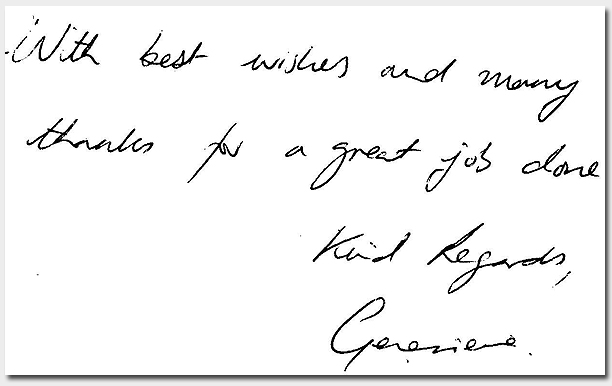 With best wishes and many
thanks for a great job done
Kind Regards,
Genevieve.